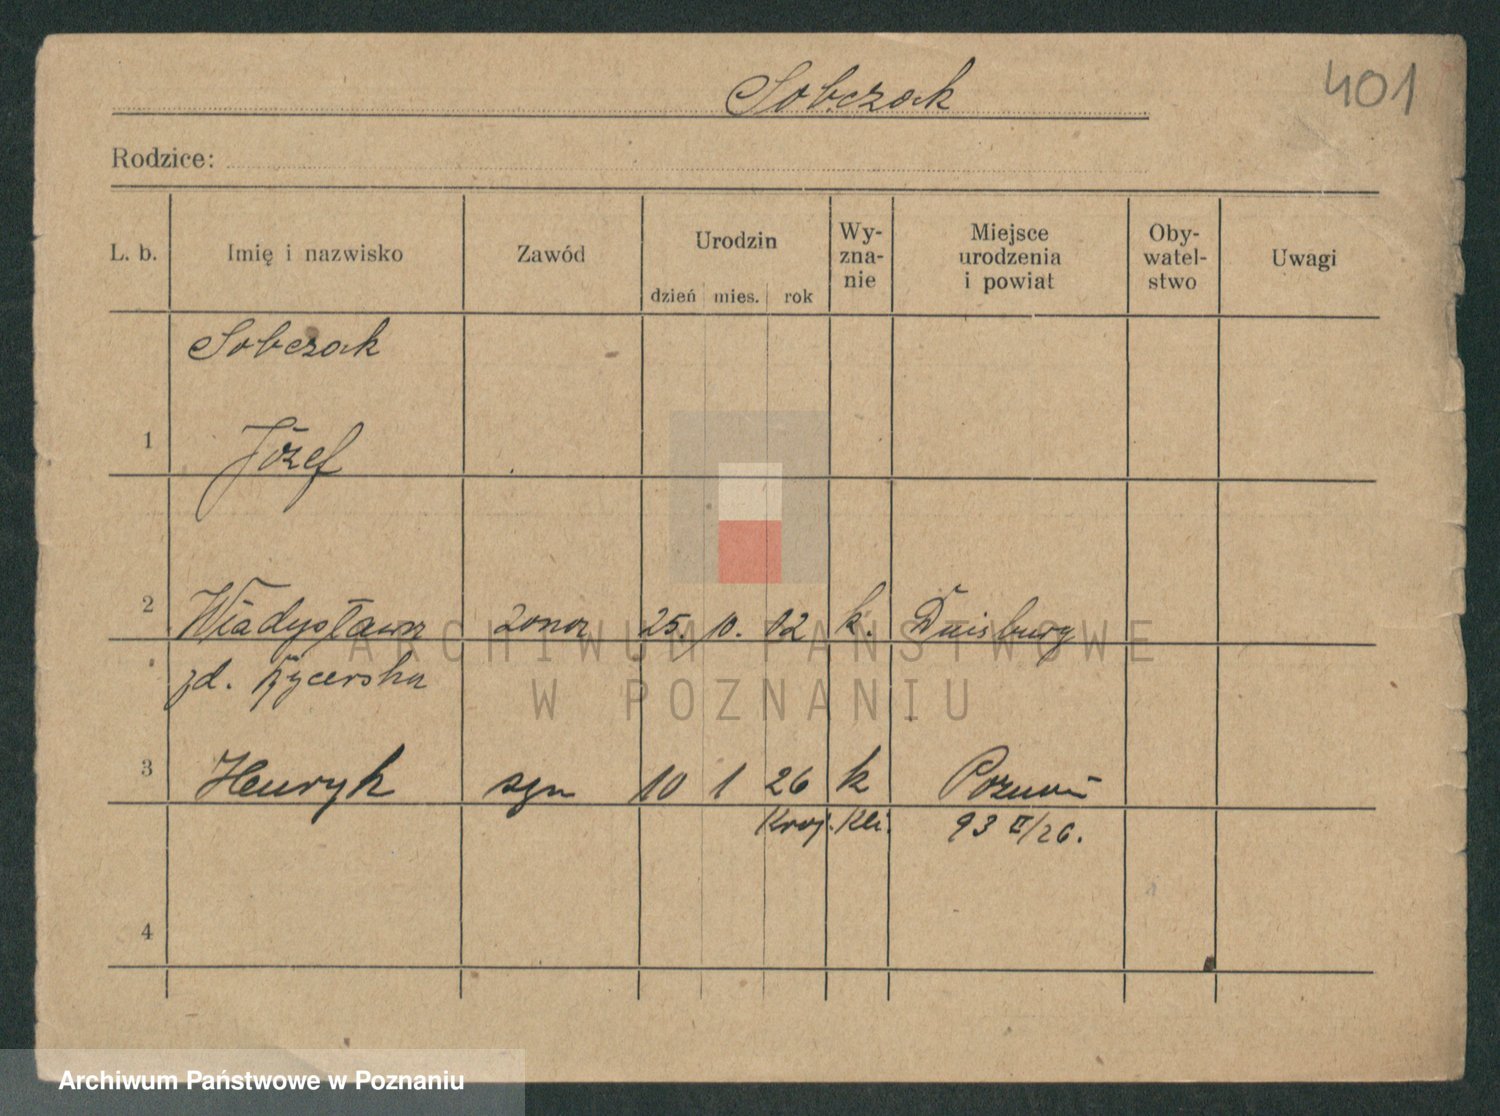 Sobczak
401
Rodzice:
L. b.
Imię i nazwisko
Zawód
Urodzin
dzień mies. rok
Wy-
zna-
nie
Miejsce
urodzenia
i powiat
Oby-
watel-
stwo
Uwagi
Sobczak
1 Józef
2 Władysława żona 25. 10. 02 k. Duisburg
zd. Rycerska
3 Henryk syn 10 1 26 k Poznań
93 II/26.
4
ARCHIWUM PAŃSTWOWE
W POZNANIU
Archiwum Państwowe w Poznaniu